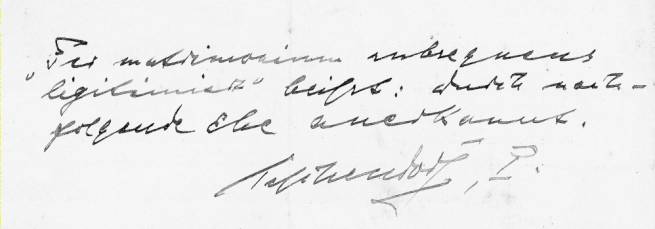 „Per matrimonium subsequens
ligitimiert“ heißt: durch nach-
folgende Ehe anerkannt.
P.